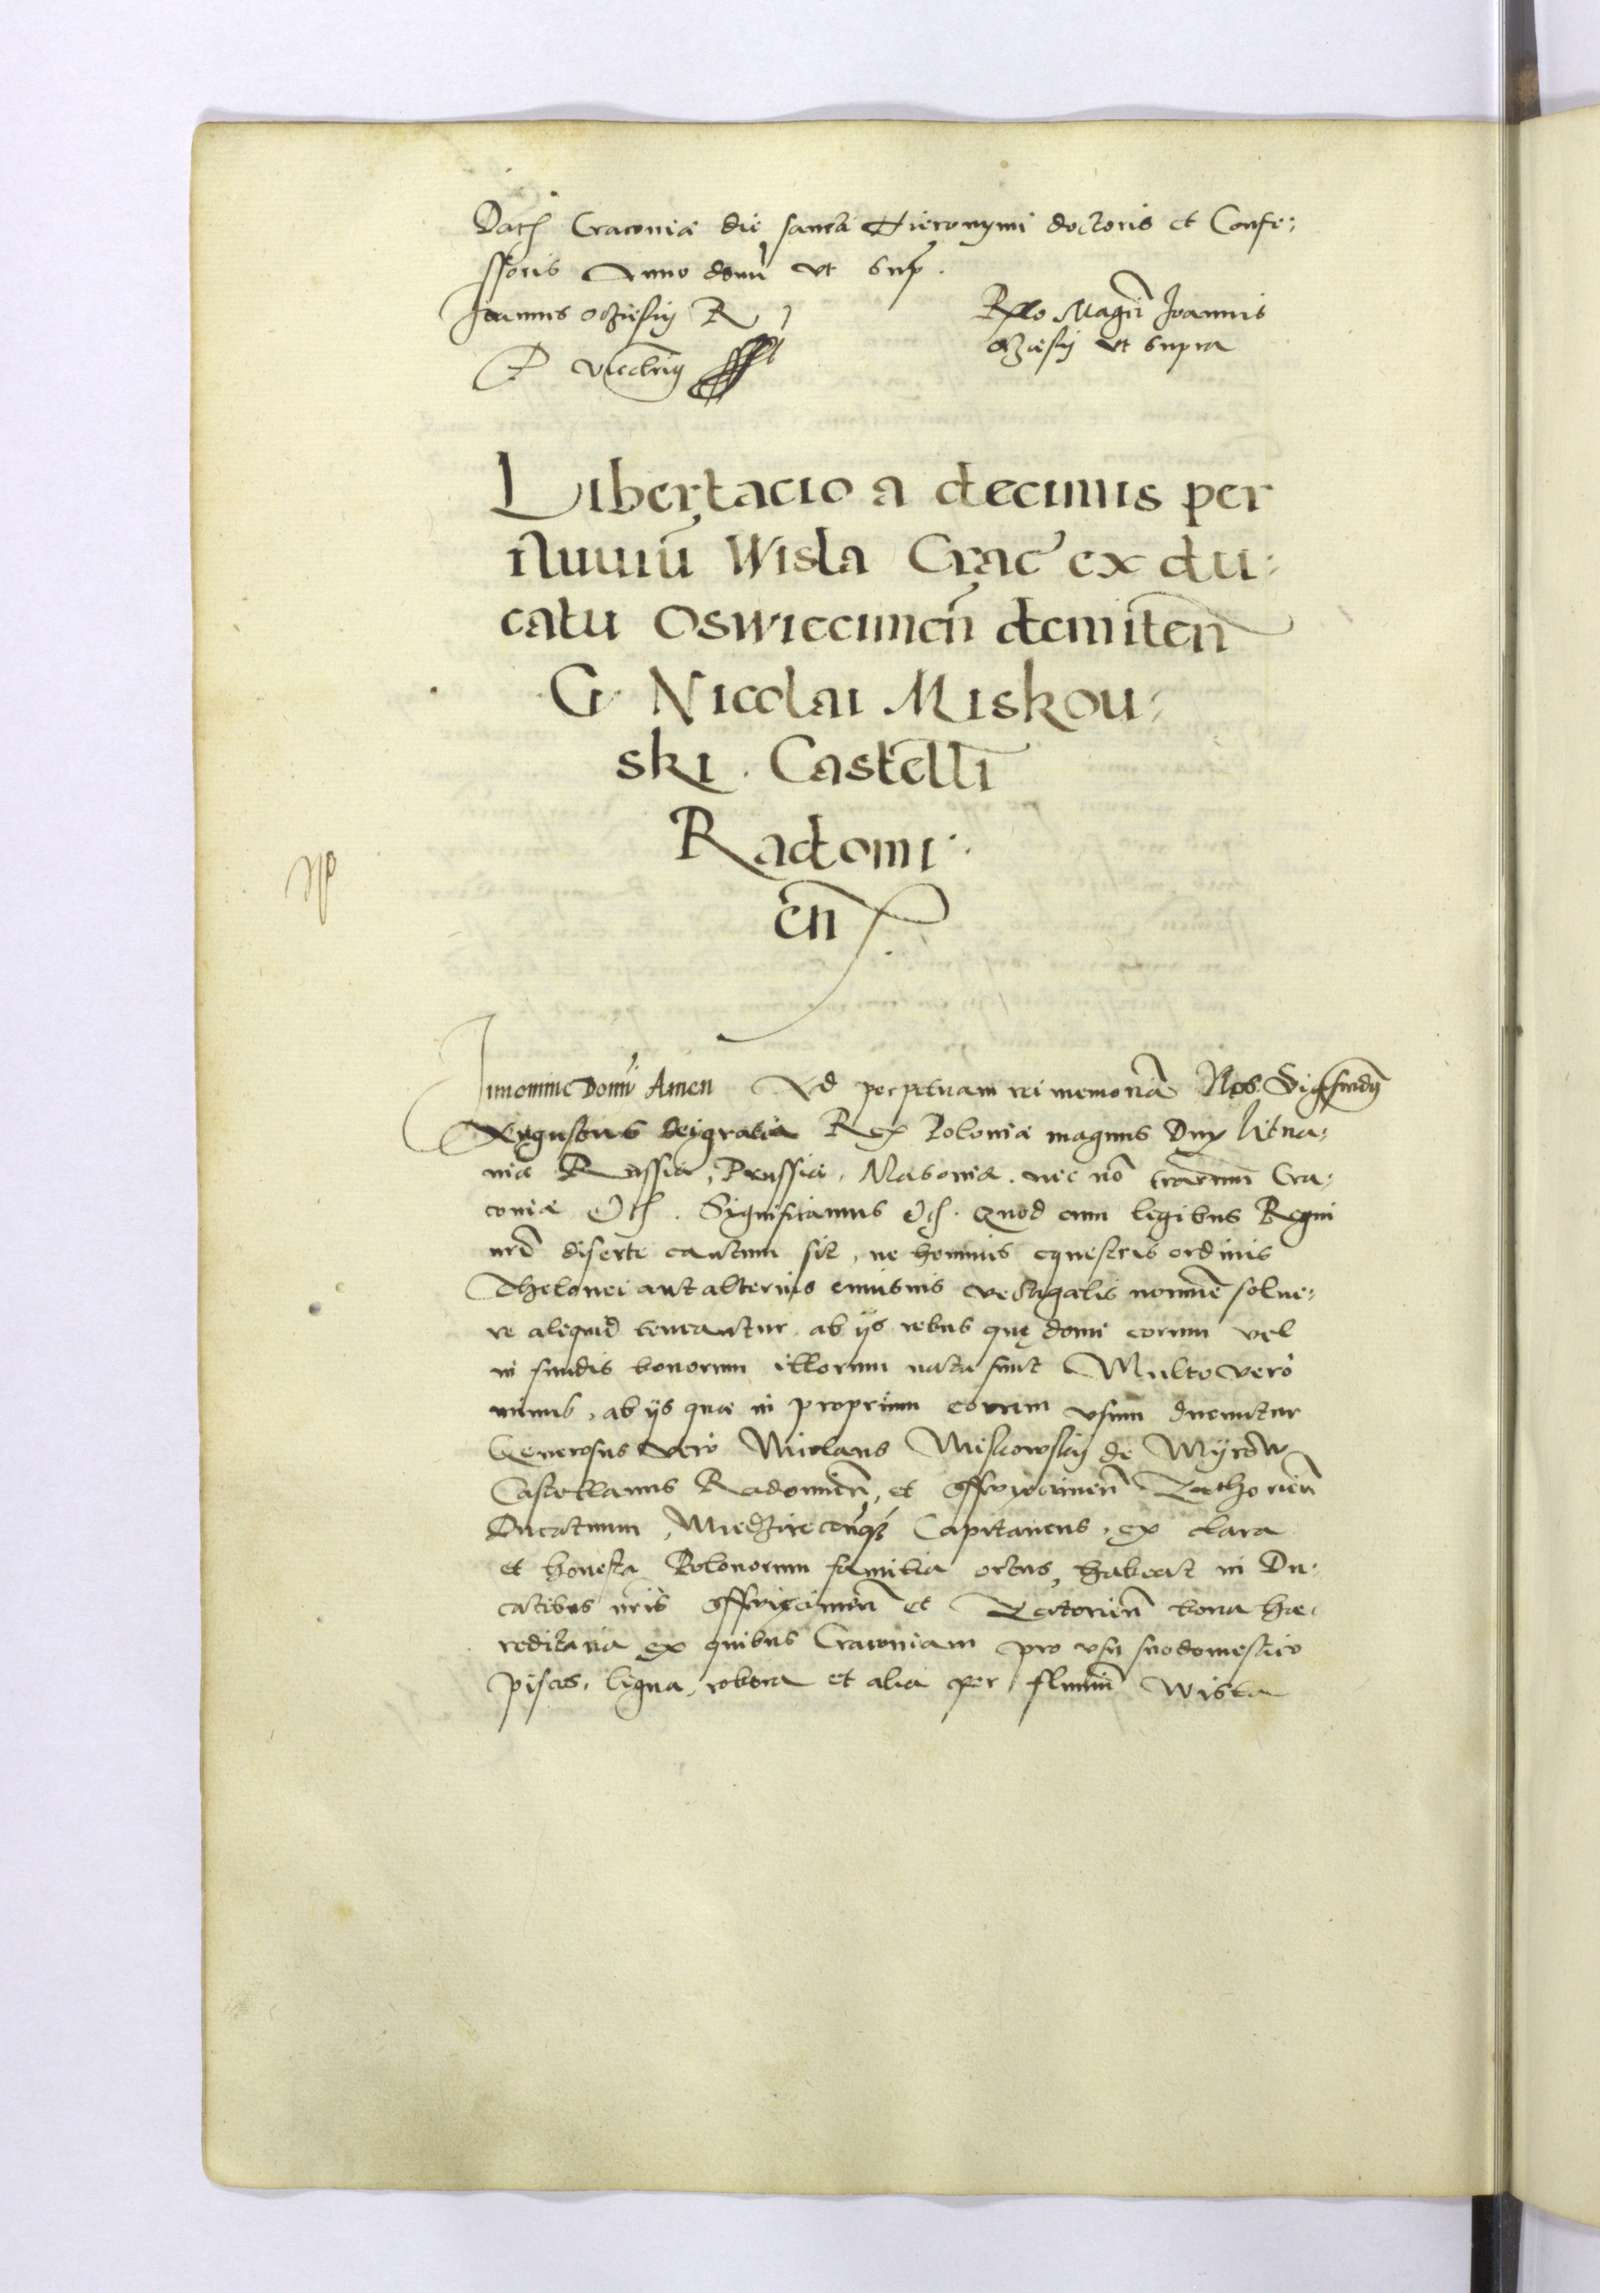 Dat Cracoviæ die sancti Hieronymi doctoris et Confe:
ssoris Anno domi ut sup.
Joannes Oczieski R
P
Rllo Magci Joannis
Oczieskj ut supra
Libertacio a decimis per
fluuiū Wisla Crac ex du:
catu Oswiecimen̄ demiten̄
G Nicolai Miskou:
ski. Castelli
Radomi:
en̄
Innomine Domi Amen Ad perpetuam rei memoriā Nos Sigismdꝰ
Augustus deigratia Rex Poloniæ magnus Dux Litua:
niæ Russiæ, Prussiæ, Masoviæ. nec nō trārum Cra:
coviæ Etc. Significamus Etc. Quod cum legibus Regni
nrī diserte cautum sit, ne homines equestris ordinis
Thelonei aut alterius cuiusuis vectigalis nomine solue:
re aliquid teneantur. ab ijs rebus quę domi eorum vel
in fundis bonorum illorum nata sunt Multo verò
minus, ab ijs quæ in proprium eorum vsum ducuntur
Generosus verò Nicolaus Miskowskij de Myrow
Castellanus Radomien̄, et Osswyęcimen̄ Zathorien̄
Ducatuum, Miedzirecen̄qꝫ Capitaneus, ex clara
et honesta Polonorum familia ortus, habeat in Du:
catibus nrīs Osswięcimen̄ et Zatorien̄ bona hæ:
reditaria ex quibus Cracoviam pro vsu suodomestico
pisces, ligna, robora et alia per fluuiū Wisla